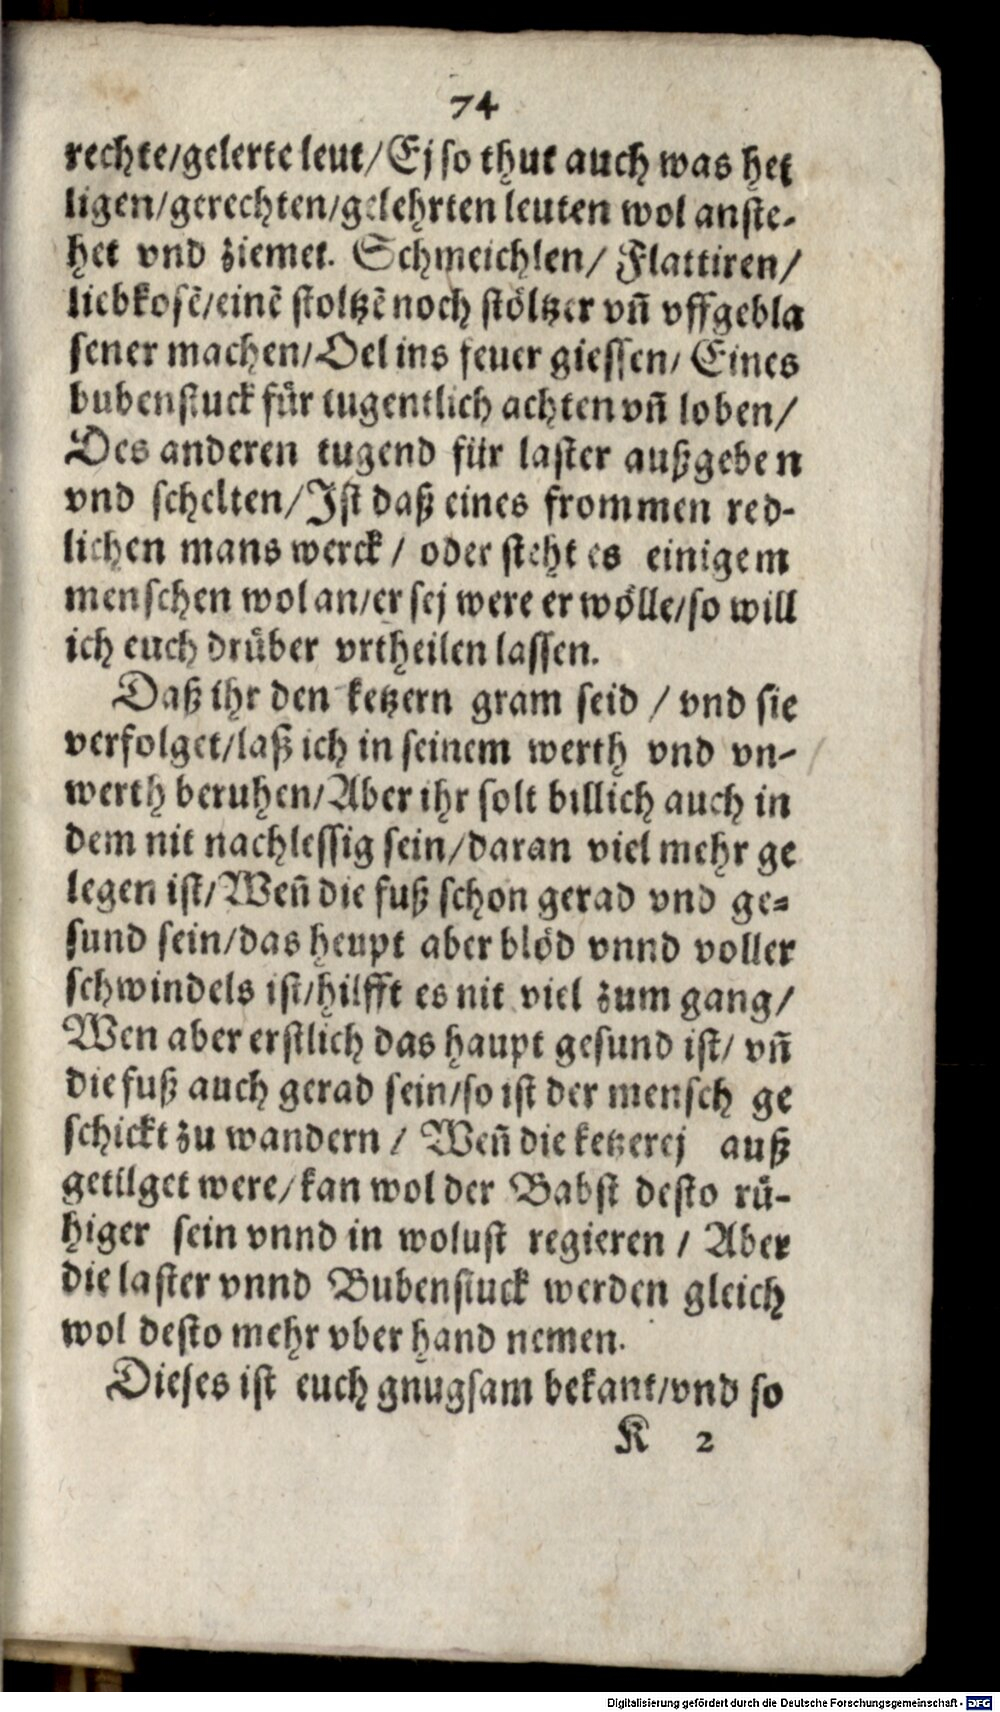 74
rechte/gelerte leut/Ej so thut auch was hei
ligen/gerechten/gelehrten leuten wol anste-
het vnd ziemet. Schmeichlen/ Flattiren/
liebkosẽ/einẽ stoltzẽ noch stöltzer vñ vffgebla
sener machen/Oel ins feuer giessen/ Eines
bubenstuck für tugentlich achten vñ loben/
Des anderen tugend für laster außgeben
vnd schelten/Ist daß eines frommen red-
lichen mans werck/ oder steht es einigem
menschen wol an/er sej were er wölle/so will
ich euch drüber vrtheilen lassen.
Daß ihr den ketzern gram seid / vnd sie
verfolget/laß ich in seinem werth vnd vn-
werth beruhen/Aber ihr solt billich auch in
dem nit nachlessig sein/daran viel mehr ge
legen ist/Weñ die fuß schon gerad vnd ge-
sund sein/das heupt aber blöd vnnd voller
schwindels ist/hilfft es nit viel zum gang/
Wen aber erstlich das haupt gesund ist/ vñ
die fuß auch gerad sein/so ist der mensch ge
schickt zu wandern / Weñ die ketzerej auß
getilget were/kan wol der Babst desto rü-
higer sein vnnd in wolust regieren / Aber
die laster vnnd Bubenstuck werden gleich
wol desto mehr vber hand nemen.
Dieses ist euch gnugsam bekant/vnd so
K 2
Digitalisierung gefördert durch die Deutsche Forschungsgemeinschaft - DFG